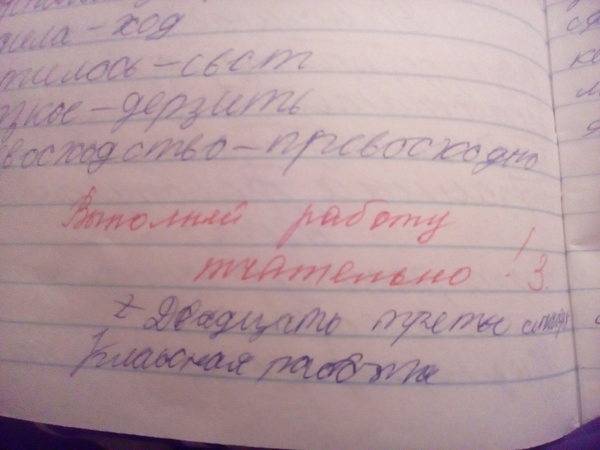 ила – ход
тилось – свст
зкое – дерзить
восходство – превосходно
Выполняй работу
тчательно! 3
Двадцать третье
Классная работа